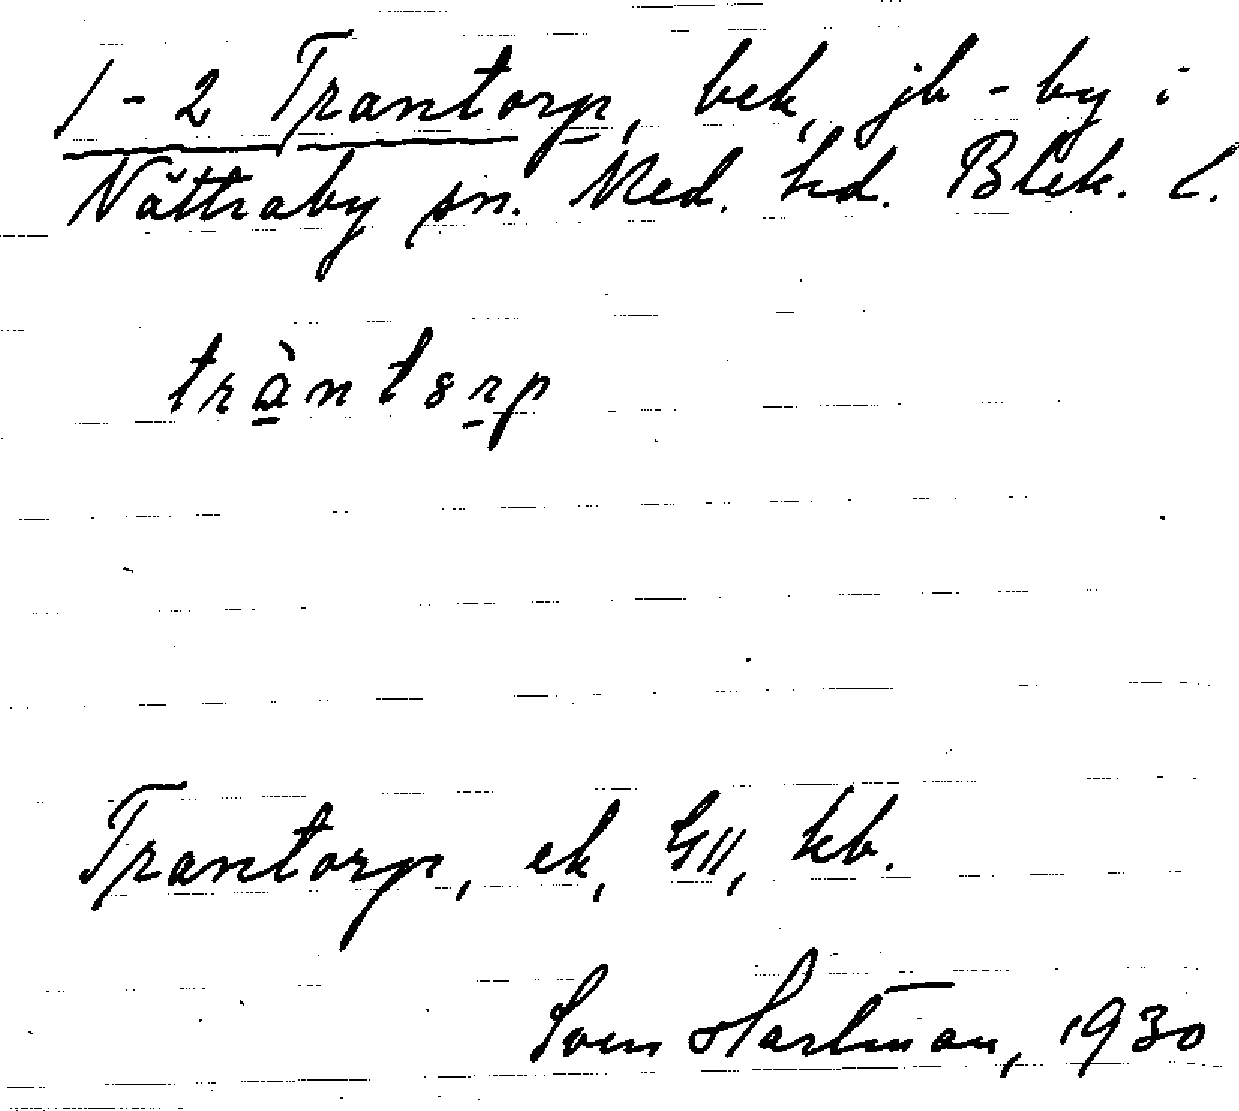 1-2 Trantorp, bek, jb-by i
Nättraby sn. Med. hd. Blek. l.
tràntsrp
Trantorp, ek, GII, kb.
Sven Hartman, 1930